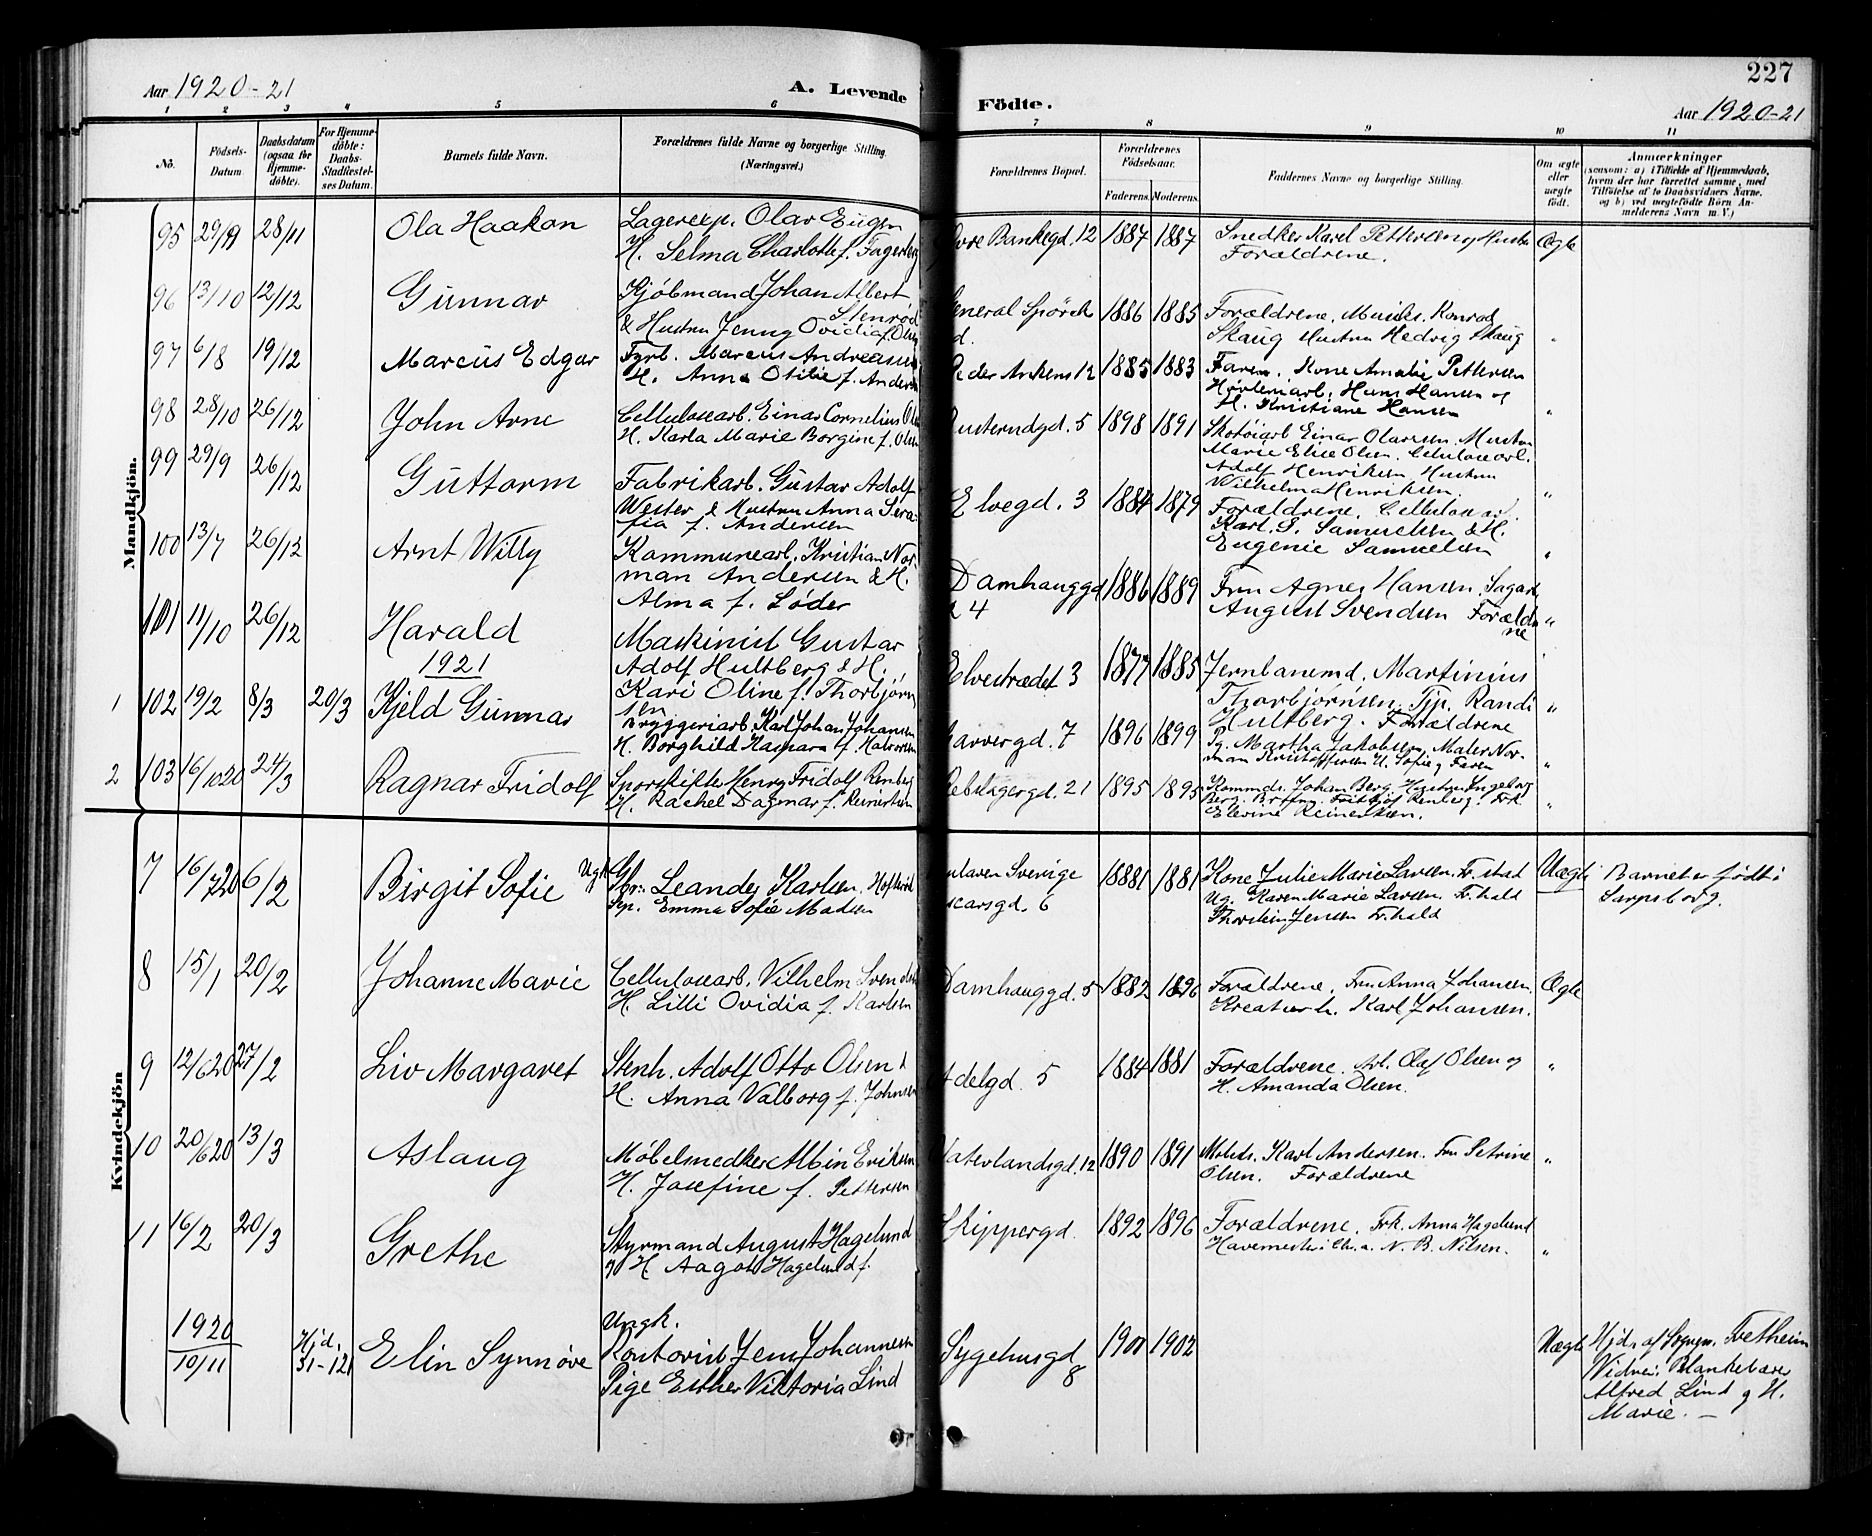 227
Aar 1920-21
A. Levende
Födte.
Aar 1920-21
1 2 3 4 5 6 7 8 9 10 11
No.
Födsels-
Datum
Daabsdatum
(ogsaa for
Hjemme-
döbte).
For Hjemme-
döbte:
Daabs-
Stadfæstel-
ses Datum.
Barnets fulde Navn.
Forældrenes fulde Navne og borgerlige Stilling.
(Næringsvei.)
Forældrenes Bopæl.
Forældrenes
Födselsaar.
Faderens. Moderens.
Faddernes Navne og borgerlige Stilling.
Om ægte
eller
uægte
födt.
Anmærkninger
(saasom: a) i Tilfælde af Hjemmedaab,
hvem der har forrettet samme, med
Tilföielse af to Daabsvidners Navne.
og b) ved uægtefödte Börn An-
melderens Navn m. V.)
Mandkjön.
95 29/9 28/11 Ola Haakon
Lagerexp. Olav Eugen
H. Selma Charlotte f. Fagerberg
Øvre Bankegd. 12 1887 1887
Snedker Karel Pettersen og Hustru
Forældrene.
Ægte
96 13/10 12/12 Gunnar
Kjöbmand Johan Albert
Stenrød
& Hustru Jenny Ovidia f. Olsen
General Spørck
1886 1885
Forældrene. Musiks. Konrad
Skaug Hustru Hedvig Skaug
"
97 6/8 19/12 Marcus Edgar
Fyrb. Marcus Andreassen
H. Anna Otilie f. Anders
Peder Ankers 12 1885 1883
Faren. Kone Amalie Pettersen
Høvleriarb. Hans Hansen og
H. Kristiane Hansen
"
98 28/10 26/12 John Arne
Cellulosearb. Einar Cornelius Olsen
H. Karla Marie Borgine f. Olsen
5 1898 1891
Skotøiarb Einar Olavesen. Hustru
Marie Elise Olsen. Cellulosearb.
Adolf Henriksen Hustru
Wilhelma Henriksen.
"
99 29/9 26/12 Guttorm
Fabrikarb. Gustav Adolf
Wester & Hustru Anna Sera-
fia f. Andersen
Elvegd. 3 1884 1879
Forældrene. Cellulosearb.
Karl. S. Samuelsen & H.
Eugenie Samuelsen
"
100 13/7 26/12 Arnt Willy
Kommunearb. Kristian Nor-
man Andersen & H.
Alma f. Løder
Damhauggd
24 1886 1889
Fru Agnes Hansen. Sagarb
August Svendsen Foræld
ne
"
101 11/10 26/12 Harald
Maskinist Gustav
Adolf Hultberg & H.
Kari Oline f. Thorbjørn
sen
Elvestrædet 3 1877 1885
Jernbanemd. Martinius
Thorbjørnsen. Tjp. Randi
Hultberg. Forældrene
"
1921
1 102 19/2 8/3 20/3 Kjeld Gunnar
Bryggeriarb. Karl Johan Johansen
H. Borghild Kaspara f. Halvorsen
Garvergd. 7 1896 1899
Pg. Martha Jakobsen, Maler Nor-
man Kristoffersen H. Sofie og Faren
"
2 103 16/10 20 24/3 Ragnar Fridolf
Sporskifter Henry Fridolf Renberg
H. Rachel Dagmar f. Reinertsen
Rebslagergd. 21 1895 1895
Kommds. Johan Berg. Hustru Ingeborg
Berg. Brfm. Frithjof Renberg. Frk
Elevine Reinertsen.
"
Kvindekjön
7 16/7 20 6/2 Birgit Sofie
Ugk. Leander Karlsen.
Pg. Emma Sofie Madsen
Sverige
Oscarsgd. 6
18881 1881
Kone Julie Marie Larsen. Fr.stad
Ug. Karen Marie Larsen. Fr.hald
Thorstein Jensen Fr.hald
Uægte
Barnet er født i
Sarpsborg.
8 15/1 20/2 Johanne Marie
Cellulosearb. Vilhelm Svendsen
H. Lilli Ovidia f. Karlsen
Damhauggd. 5 1882 1896
Forældrene. Fru Anna Johansen.
Kreaturh. Karl Johansen.
Ægte
9 12/6 20 27/2 Liv Margaret
Stenh. Adolf Otto Olsen &
H. Anna Valborg f. Johnsen
Adelgd. 5 1884 1881
Forældrene. Arb. Olaf Olsen og
H. Amanda Olsen.
"
10 20/6 20 13/3 Aslaug
Møbelsnedker Albin Eriksen
H. Josefine f. Pettersen
Vaterlandsgd. 12 1890 1891
Møbels. Karl Andersen. Fru Petrine
Olsen. Forældrene
"
11 16/2 20/3 Grethe
Styrmand August Hagelund
og H Aagot Hagelund f.
Skippergd. 1892 1896
Forældrene. Frk. Anna Hagelund
Havemester N. B. Nilsen.
"
1920
10/11
Hjd.
31-12
Elin Synnøve
Ungk.
Kontorist Jens Johannesen
Pige Esther Viktoria Lind
Sygehusgd
8
1901 1902
Uægte
Hjd. af Sogepr. Tretheim
Vidner: Blankebærer
Alfred Lind og H.
Marie. —